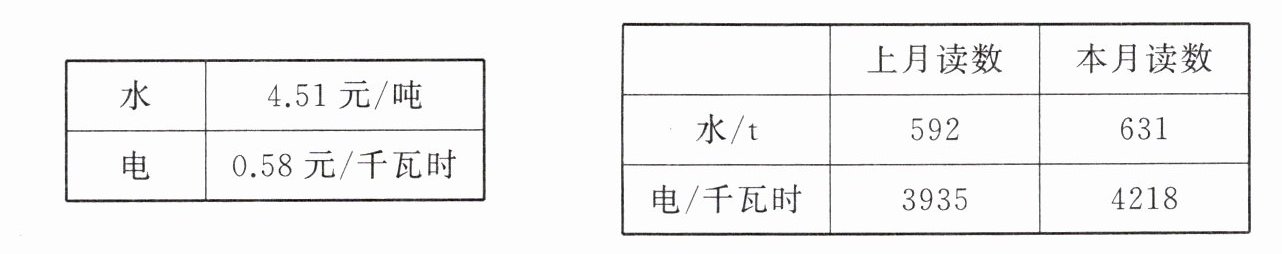 水 4.51 元/吨
电 0.58 元/千瓦时
上月读数 本月读数
水/t 592 631
电/千瓦时 3935 4218